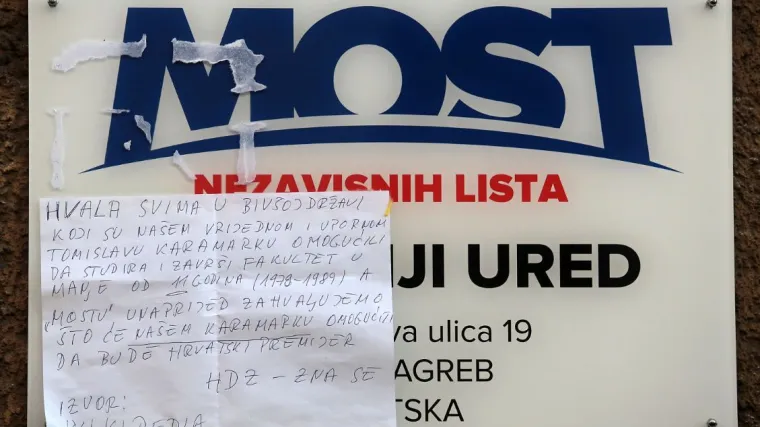 MOST
NEZAVISNIH LISTA
HVALA SVIMA U BIVŠOJ DRŽAVI
KOJI SU NAŠEM VRIJEDNOM I UPORNOM
TOMISLAVU KARAMARKU OMOGUĆILI
DA STUDIRA I ZAVRŠI FAKULTET U
MANJE OD 11 GODINA (1979-1989) A
"MOSTU" UNAPRIJED ZAHVALJUJEMO
ŠTO ĆE NAŠEM KARAMARKU OMOGUĆITI
DA BUDE HRVATSKI PREMIJER
HDZ - ZNA SE
IZVOR:
WIKIPEDIA
JI URED
va ulica 19
AGREB
TSKA